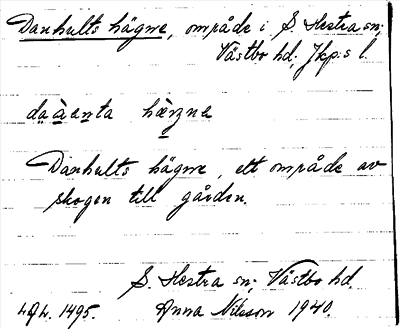 Danhults hägne, område i S. Hestra sn;
Västbo hd; Jkp:s l.
hæ̀rgne
Danhults hägne, ett område av
skogen till gården.
S. Hestra sn; Västbo hd.
1495. Anna Nilsson 1940.